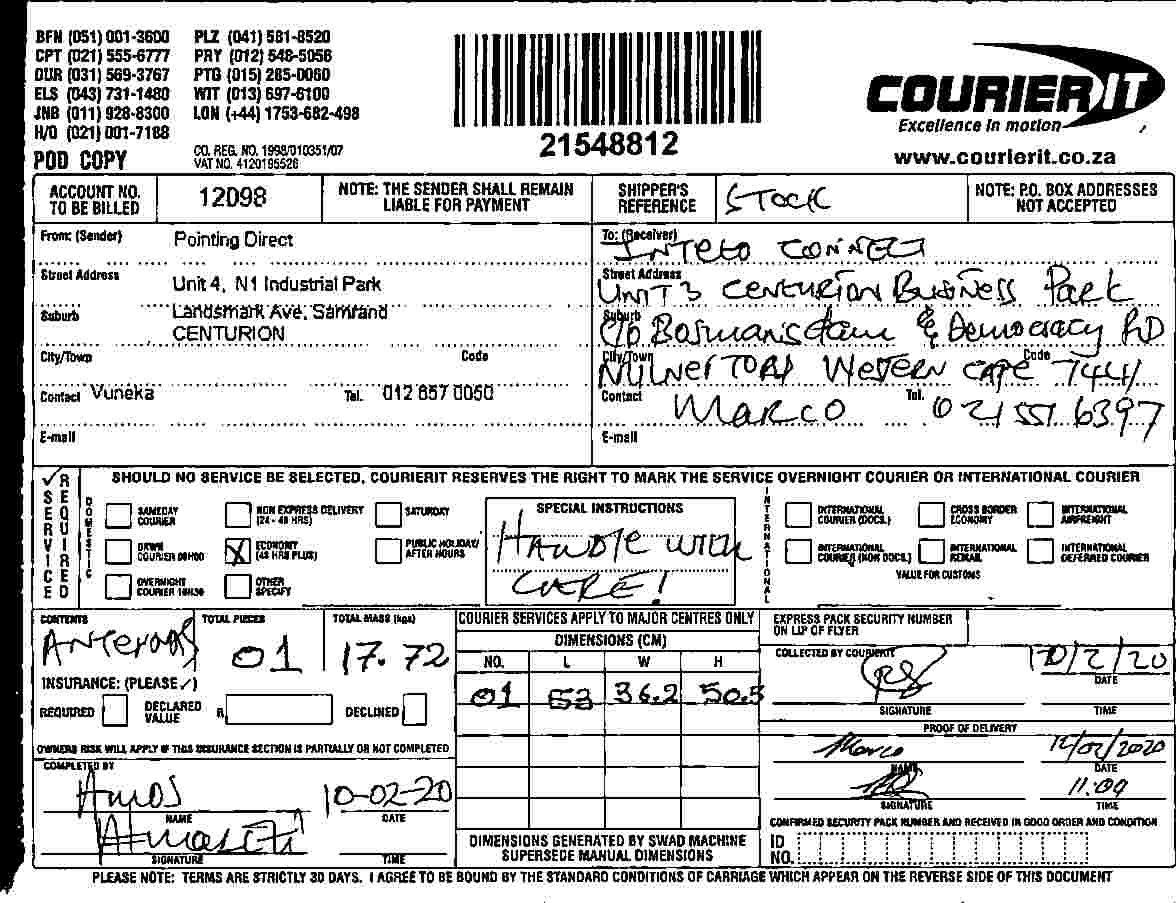 BFN (051) 001-3600 PLZ (041) 581-8520
CPT (021) 555-6777 PRY (012) 548-5056
DUR (031) 569-3767 PTG (015) 285-0060
ELS (043) 731-1480 WIT (013) 697-6100
JNB (011) 928-8300 LON (+44) 1753-682-498
H/O (021) 001-7188
POD COPY
CO. REG. NO. 1998/010351/07
VAT NO. 4120195526
21548812
COURIER IT
Excellence in motion
www.courierit.co.za
ACCOUNT NO. TO BE BILLED
12098
NOTE: THE SENDER SHALL REMAIN LIABLE FOR PAYMENT
SHIPPER'S REFERENCE
STOCK
NOTE: P.O. BOX ADDRESSES NOT ACCEPTED
From: (Sender) Pointing Direct
Street Address Unit 4, N1 Industrial Park
Suburb Landsmark Ave, Samrand
CENTURION
City/Town Code
Contact Vuneka Tel. 012 657 0050
E-mail
To: (Receiver)
CONNECT
Street Address
UNIT 3 CENTURION BUSINESS PARK
Suburb
C/O Bosmansdam & Democracy RD
City/Town Code
MilnerTON WESTERN CAPE 7441
Contact MARCO Tel. 021 551 6397
E-mail
SERVICE REQUIRED
SHOULD NO SERVICE BE SELECTED, COURIERIT RESERVES THE RIGHT TO MARK THE SERVICE OVERNIGHT COURIER OR INTERNATIONAL COURIER
DOMESTIC
SAMEDAY COURIER
NON EXPRESS DELIVERY (24 - 48 HRS)
SATURDAY
DAWN COURIER 09H00
ECONOMY (48 HRS PLUS)
PUBLIC HOLIDAY/ AFTER HOURS
OVERNIGHT COURIER 10H30
OTHER SPECIFY
SPECIAL INSTRUCTIONS
HANDLE WITH
CARE!
INTERNATIONAL
INTERNATIONAL COURIER (DOCS.)
CROSS BORDER ECONOMY
INTERNATIONAL AIRFREIGHT
INTERNATIONAL COURIER (NON DOCS.)
INTERNATIONAL REMAIL
INTERNATIONAL DEFERRED COURIER
VALUE FOR CUSTOMS
CONTENTS
TOTAL PIECES 01
TOTAL MASS (kgs) 17.72
INSURANCE: (PLEASE ✓)
REQUIRED DECLARED VALUE R DECLINED
OWNERS RISK WILL APPLY IF THIS INSURANCE SECTION IS PARTIALLY OR NOT COMPLETED
COMPLETED BY
AMOS 10-02-20
NAME DATE
SIGNATURE TIME
COURIER SERVICES APPLY TO MAJOR CENTRES ONLY
DIMENSIONS (CM)
NO. L W H
01 53 36.2 50.5
DIMENSIONS GENERATED BY SWAD MACHINE
SUPERSEDE MANUAL DIMENSIONS
EXPRESS PACK SECURITY NUMBER
ON LIP OF FLYER
COLLECTED BY COURIERIT
10/2/20
DATE
SIGNATURE TIME
PROOF OF DELIVERY
Marco 12/02/2020
NAME DATE
11:09
SIGNATURE TIME
CONFIRMED SECURITY PACK NUMBER AND RECEIVED IN GOOD ORDER AND CONDITION
ID NO.
PLEASE NOTE: TERMS ARE STRICTLY 30 DAYS. I AGREE TO BE BOUND BY THE STANDARD CONDITIONS OF CARRIAGE WHICH APPEAR ON THE REVERSE SIDE OF THIS DOCUMENT